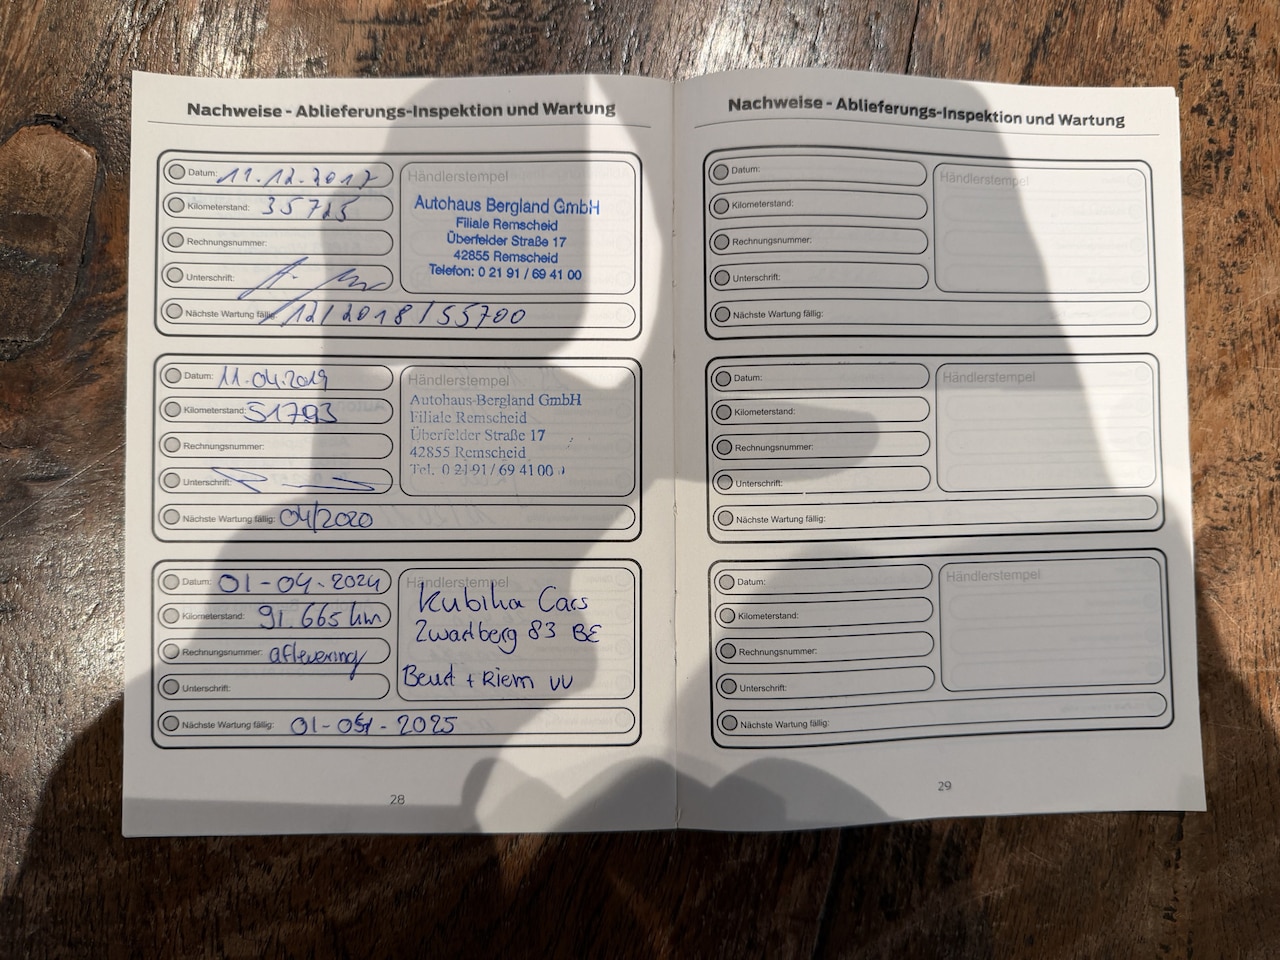 Nachweise - Ablieferungs-Inspektion und Wartung
Datum: 11.12.2017
Kilometerstand: 35725
Rechnungsnummer:
Unterschrift:
Nächste Wartung fällig: 12/2018/55700
Händlerstempel
Autohaus Bergland GmbH
Filiale Remscheid
Überfelder Straße 17
42855 Remscheid
Telefon: 0 21 91 / 69 41 00
Datum: 11.04.2019
Kilometerstand: 51793
Rechnungsnummer:
Unterschrift:
Nächste Wartung fällig: 04/2020
Händlerstempel
Autohaus-Bergland GmbH
Filiale Remscheid
Überfelder Straße 17
42855 Remscheid
Tel. 0 21 91 / 69 41 00
Datum: 01-04-2024
Kilometerstand: 91.665 km
Rechnungsnummer: aflevering
Unterschrift:
Nächste Wartung fällig: 01-04-2025
Händlerstempel
Kubika Cars
Zwartberg 83 BE
Beurt + Riem VV
28
Nachweise - Ablieferungs-Inspektion und Wartung
Datum:
Kilometerstand:
Rechnungsnummer:
Unterschrift:
Nächste Wartung fällig:
Händlerstempel
Datum:
Kilometerstand:
Rechnungsnummer:
Unterschrift:
Nächste Wartung fällig:
Händlerstempel
Datum:
Kilometerstand:
Rechnungsnummer:
Unterschrift:
Nächste Wartung fällig:
Händlerstempel
29